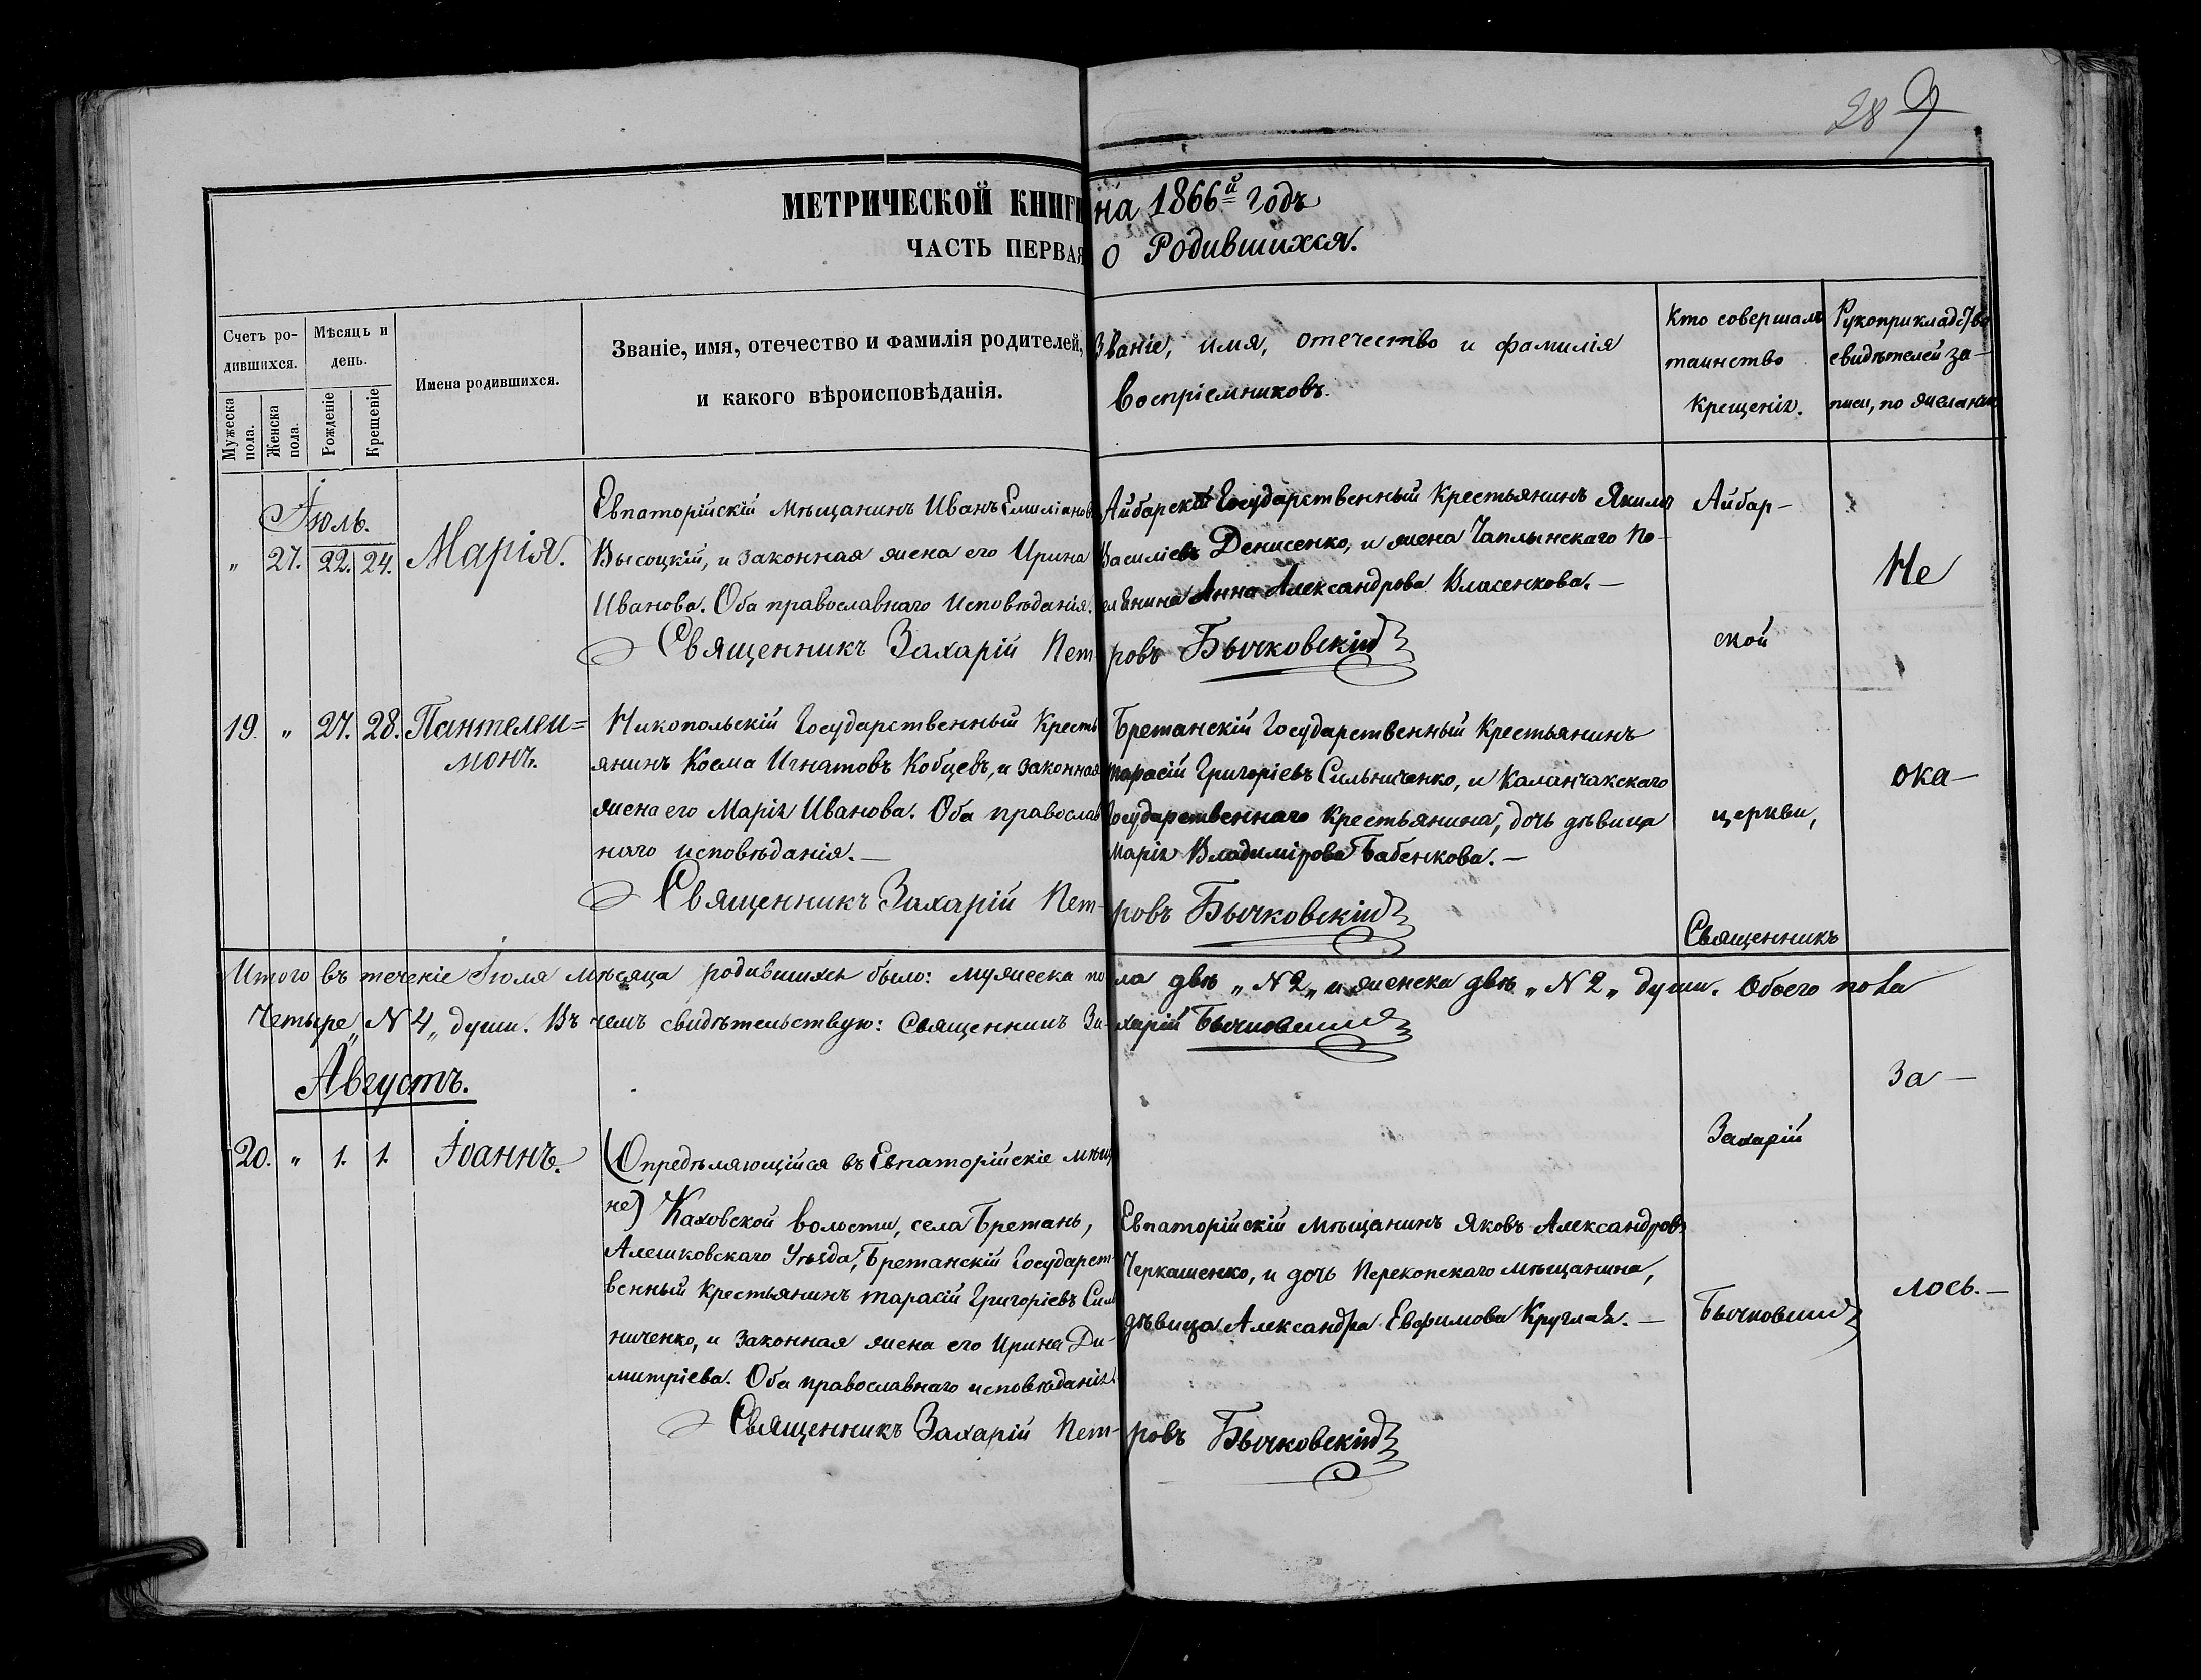 28 9
МЕТРИЧЕСКОЙ КНИГИ на 1866й годъ
ЧАСТЬ ПЕРВАЯ о Родившихся.
Счетъ ро-
дившихся.
Мужеска пола.
Женска пола.
Мѣсяцъ и
день.
Рожденіе
Крещеніе
Имена родившихся.
Званіе, имя, отечество и фамилія родителей,
и какого вѣроисповѣданія.
Званіе, имя, отечество и фамилія
воспріемниковъ.
Кто совершалъ
таинство
крещенія.
Рукоприкладство
свидѣтелей за-
писи, по желанію
Іюль.
" 27. 22. 24. Марія.
Евпаторійскій мѣщанинъ Иванъ Емиліановъ
Высоцкій, и законная жена его Ирина
Иванова. Оба православнаго исповѣданія.
Айбарскій Государственный крестьянинъ Якимъ
Василіевъ Денисенко, и жена Чаплынскаго По-
селянина Анна Александрова Власенкова.—
Священникъ Захарій Пет-ровъ Бычковскій
19. " 27. 28. Пантелеи=
монъ.
Никопольскій Государственный Кресть-
янинъ Косма Игнатовъ Кобцевъ, и законная
жена его Марія Иванова. Оба православ-
наго исповѣданія.—
Бретанскій Государственный крестьянинъ
Тарасій Григоріевъ Сильниченко, и Каланчакскаго
Государственнаго крестьянина, дочь дѣвица
Марія Владимірова Бабенкова.—
Священникъ Захарій Пет-ровъ Бычковскій
Итого въ теченіе Іюля мѣсяца родившихся было: мужеска пола двѣ „N 2„ и женска двѣ „N 2„ души. Обоего пола
Четыре „N 4„ души. Въ чемъ свидѣтельствую: Священникъ За-харій Бычковскій
Августъ.
20. " 1. 1. Іоаннъ.
(Опредѣляющійся въ Евпаторійскіе мѣща-
не) Каховской волости, села Бретань,
Алешковскаго Уѣзда, Бретанскій Государст-
венный крестьянинъ Тарасій Григоріевъ Силь-
ниченко, и законная жена его Ирина Ди-
митріева. Оба православнаго исповѣданія.
Евпаторійскій мѣщанинъ Яковъ Александровъ
Черкашенко, и дочь Перекопскаго мѣщанина,
дѣвица Александра Евфимова Круглая.—
Священникъ Захарій Пет-ровъ Бычковскій
Айбар-
ской
церкви,
Священникъ
Захарій
Бычковскій
Не
ока-
за-
лось.—